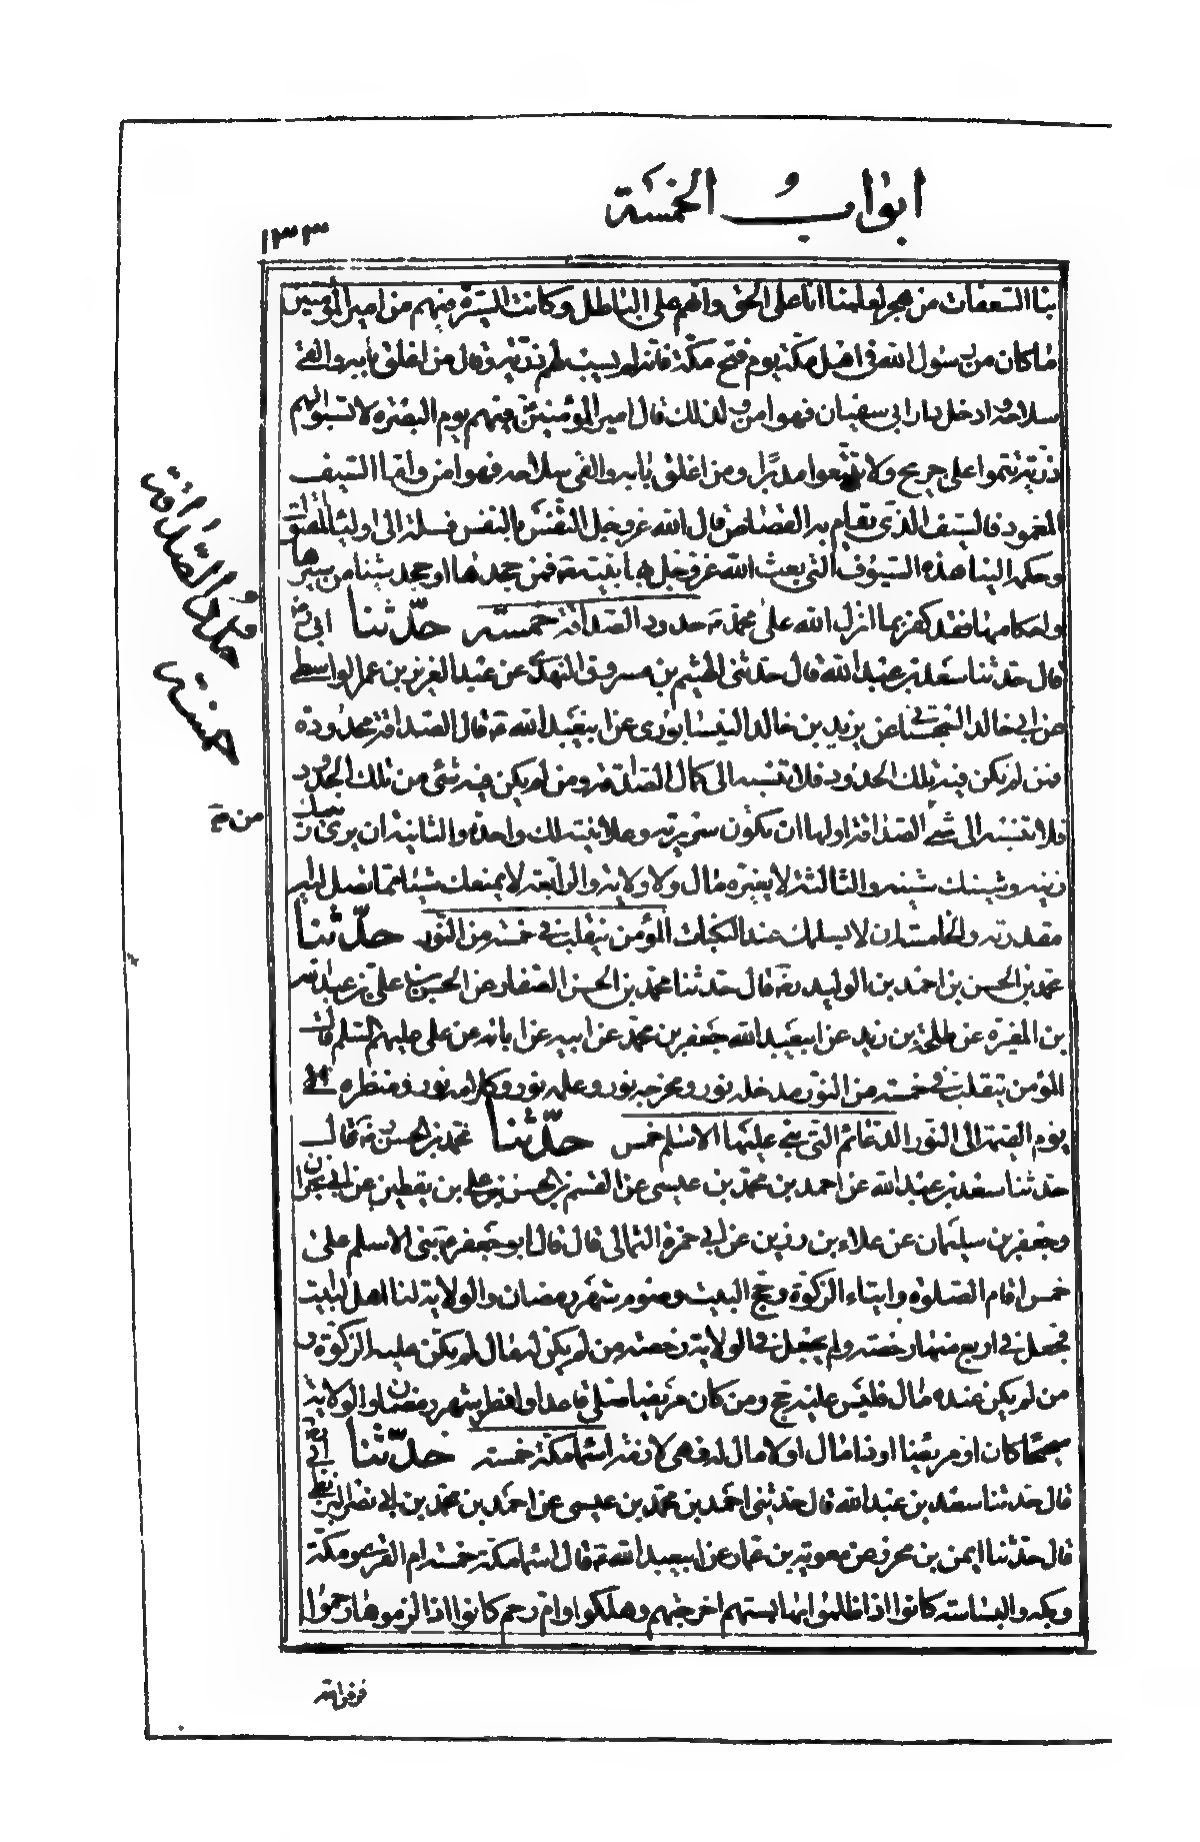 ابواب الخمسة
١٣٣
بنا السعفات من هجر لعلمنا انا على الحق وانهم على الباطل وكانت السيرة فيهم من امير المؤمنين
ما كان من رسول الله فى اهل مكة يوم فتح مكة فانه لم يسب لهم ذرية وقال من اغلق بابه والقى
سلاحه او دخل دار ابى سفيان فهو امن وكذلك قال امير المؤمنين فيهم يوم البصره لا تسبوا لهم
ذرية ولا تتموا على جريح ولا تتبعوا مدبرا ومن اغلق بابه والقى سلاحه فهو امن واما السيف
المغمود فالسيف الذى يقام به القصاص قال الله عز وجل النفس بالنفس فسله الى اولياء المقتول
وحكمه الينا هذه السيوف التى بعث الله عز وجل بها نبيه ص فمن جحدها او جحد شيئا من سيرها
واحكامها فقد كفر بما انزل الله على محمد ص حدود الصداقة خمسة حدثنا ابى ره
قال حدثنا سعد بن عبد الله قال حدثنى الهيثم بن مسروق النهدى عن عبد العزيز بن عمر الواسطى
عن ابى خالد السجستانى عن يزيد بن خالد النيسابورى عن ابيعبد الله ع قال الصداقة محدودة
فمن لم تكن فيه تلك الحدود فلا تنسبه الى كمال الصداقة ومن لم يكن فيه شئ من تلك الحدود
فلا تنسبه الى شئ الصداقة اولها ان تكون سريرته وعلانيته لك واحدة والثانية ان يرى زينك
زينه وشينك شينه والثالثة لا يغيره مال ولا ولاية والرابعة لا يمنعك شيئا مما تصل اليه
مقدرته والخامسة ان لا يسلمك عند النكبات المؤمن يتقلب فى خمسة من النور حدثنا
محمد بن الحسن بن احمد بن الوليد ره قال حدثنا محمد بن الحسن الصفار عن الحسن بن على بن عبد الله
بن المغيرة عن طلحة بن زيد عن ابيعبد الله جعفر بن محمد عن ابيه عن ابائه عن على عليهم السلم قال
المؤمن يتقلب فى خمسة من النور مدخله نور ومخرجه نور وعلمه نور وكلامه نور ومنظره الى
يوم القيمة الى النور الدعائم التى بنى عليها الاسلم خمس حدثنا محمد بن الحسن ره قال
حدثنا سعد بن عبد الله عن احمد بن محمد بن عيسى عن القسم بن الحسن بن على بن يقطين عن ابن ابى نجران
وجعفر بن سليمان عن علاء بن رزين عن ابى حمزة الثمالى قال قال ابو جعفر ع بنى الاسلم على
خمس اقام الصلوة وايتاء الزكوة وحج البيت وصوم شهر رمضان والولاية لنا اهل البيت
فجعل فى اربع منها رخصة ولم يجعل فى الولاية رخصة من لم يكن له مال لم تكن عليه الزكوة و
من لم يكن عنده مال فليس عليه حج ومن كان مريضا صلى قاعدا وافطر شهر رمضان والولاية
صحيحا كان او مريضا او ذا مال او لا مال له فهى لازمة اسماء مكة خمسة حدثنا ابى ره
قال حدثنا سعد بن عبد الله قال حدثنى احمد بن محمد بن عيسى عن احمد بن محمد بن ابى نصر البزنطى
قال حدثنا ايمن بن محرز عن معوية بن عمار عن ابيعبد الله ع قال اسماء مكة خمسة ام القرى ومكة
وبكة والبساسة كانوا اذا ظلموا بها بستهم اخرجتهم وهلكوا وام رحم كانوا اذا لزموها رحموا
حدود الصداقة
خمسة